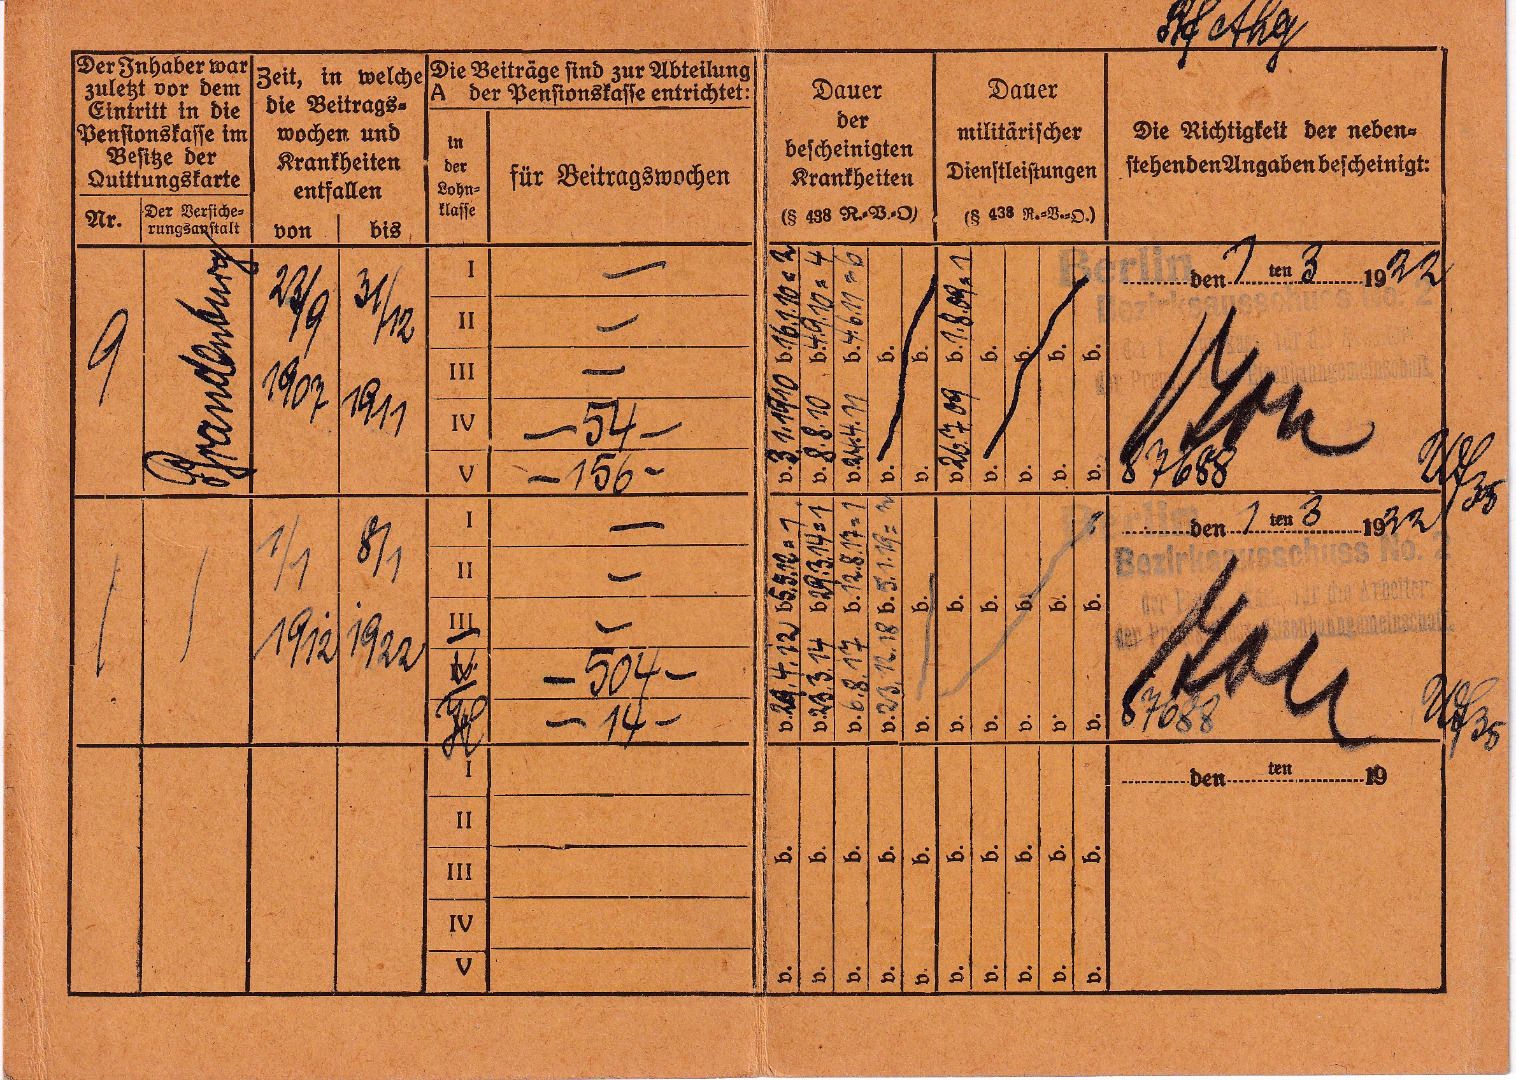 Der Inhaber war
zuletzt vor dem
Eintritt in die
Pensionskasse im
Besitze der
Quittungskarte
Nr.
Der Versiche-
rungsanstalt
Zeit, in welche
die Beitrags-
wochen und
Krankheiten
entfallen
von bis
Die Beiträge sind zur Abteilung
A der Pensionskasse entrichtet:
in
der
Lohn-
klasse
für Beitragswochen
Dauer
der
bescheinigten
Krankheiten
(§ 438 R.-V.-O)
Dauer
militärischer
Dienstleistungen
(§ 438 R.-V.-O.)
Die Richtigkeit der neben-
stehenden Angaben bescheinigt:
9 Brandenburg
23/9 31/12
1907 1911
I —
II —
III —
IV — 54 —
V — 156 —
v. 3.1.1910 b. 16.1.10 = 2
v. 8.8.10 b. 4.9.10 = 4
v. 24.4.11 b. 4.6.11 = 6
v. b.
v. b.
v. 26.7.09 b. 1.8.09 = 1
v. b.
v. b.
v. b.
v. b.
Berlin den 1 ten 3 1922
Bezirksausschuss No. 2
87688
1/1 8/1
1912 1922
I —
II —
III —
IV — 504 —
— 14 —
v. 29.4.12 b. 5.5.12 = 1
v. 23.3.14 b. 29.3.14 = 1
v. 6.8.17 b. 12.8.17 = 1
v. 23.12.18 b. 5.1.19 = 2
v. b.
v. b.
v. b.
v. b.
v. b.
v. b.
Berlin den 1 ten 3 1922
Bezirksausschuss No. 2
87688
I
II
III
IV
V
v. b.
v. b.
v. b.
v. b.
v. b.
v. b.
v. b.
v. b.
v. b.
v. b.
den ten 19